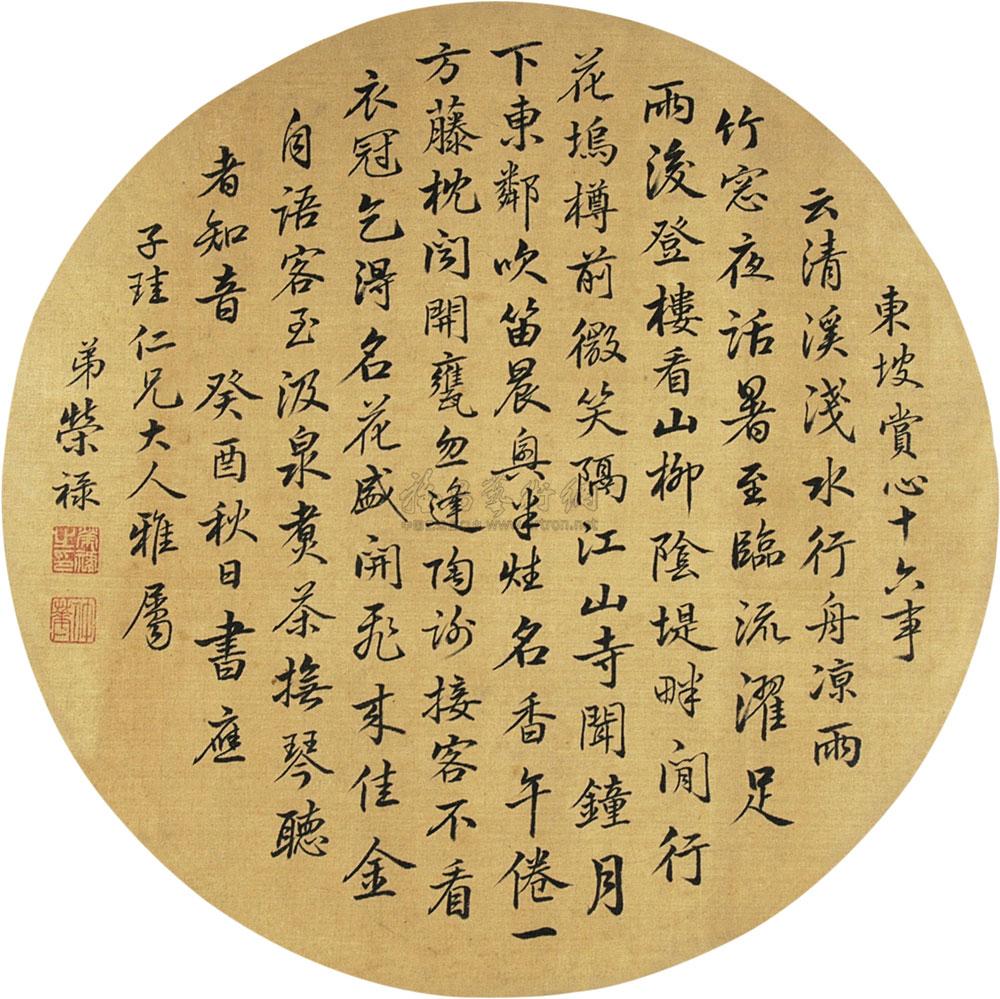 東坡賞心十六事
云清溪淺水行舟凉雨
竹窓夜話暑至臨流濯足
雨後登樓看山柳陰堤畔閒行
花塢樽前微笑隔江山寺聞鐘月
下東鄰吹笛晨興半炷名香午倦一
方藤枕開甕勿逢陶謝接客不看
衣冠乞得名花盛開飛來佳金
自語客至汲泉煮茶撫琴聽
者知音 癸酉秋日書應
子珪仁兄大人雅屬
弟榮祿
榮祿之印
仲華
雅昌藝術網
www.artron.net